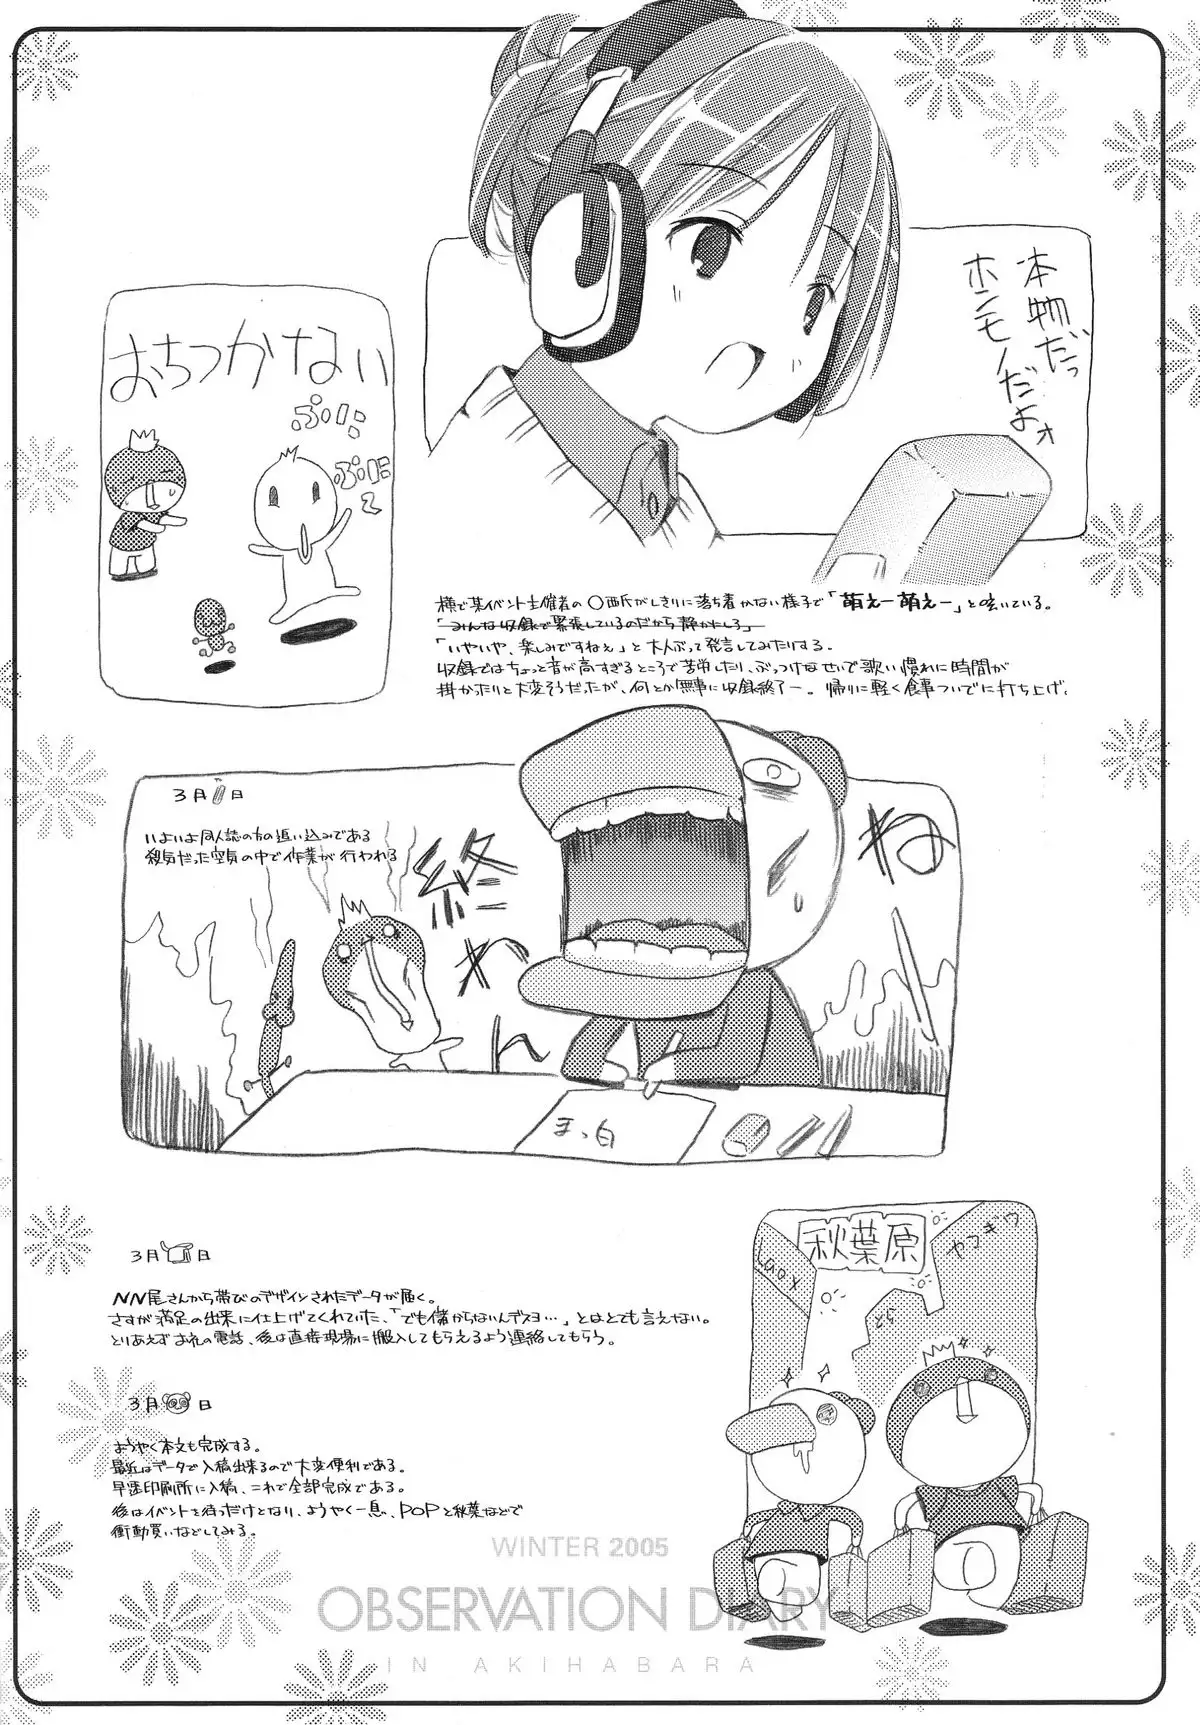 本物だっ
ホンモノだよォ
おちつかない
ぷに
ぷに
横で某イベント主催者の〇西氏がしきりに落ち着かない様子で「萌えー萌えー」と呟いている。
「みんな収録で緊張しているのだから静かにしろ」
「いやいや、楽しみですねぇ」と大人ぶって発言してみたりする。
収録ではちょっと音が高すぎるところで苦労したり、ぶっつけなせいで歌い慣れに時間が
掛かったりと大変そうだったが、何とか無事に収録終了ー。帰りに軽く食事ついでに打ち上げ。
3月 日
いよいよ同人誌の方の追い込みである
殺気だった空気の中で作業が行われる
終
わ
ん
ね
まっ白
3月 日
NN尾さんから帯びのデザインされたデータが届く。
さすが満足の出来に仕上げてくれていた、「でも儲からないんデスヨ…」とはとても言えない。
とりあえずお礼の電話、後は直接現場に搬入してもらえるよう連絡してもらう。
3月 日
ようやく本文も完成する。
最近はデータで入稿出来るので大変便利である。
早速印刷所に入稿、これで全部完成である。
後はイベントを待つだけとなり、ようやく一息、POPと秋葉などで
衝動買いなどしてみる。
秋葉原
Laox
ヤマギワ
WINTER 2005
OBSERVATION DIARY
IN AKIHABARA